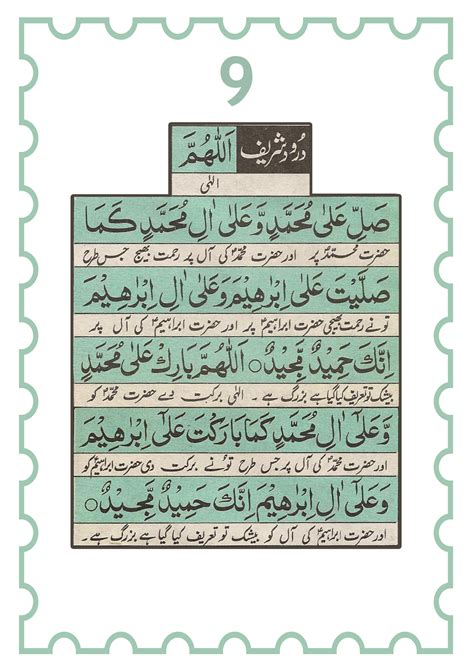 9
درود شریف اَللّٰهُمَّ
الٰہی
صَلِّ عَلٰى مُحَمَّدٍ وَّعَلٰى اٰلِ مُحَمَّدٍ كَمَا
حضرت محمدؐ پر اور حضرت محمدؐ کی آل پر رحمت بھیج جس طرح
صَلَّيْتَ عَلٰى اِبْرٰهِيْمَ وَعَلٰى اٰلِ اِبْرٰهِيْمَ
تو نے رحمت بھیجی حضرت ابراہیمؑ پر اور حضرت ابراہیمؑ کی آل پر
اِنَّكَ حَمِيْدٌ مَّجِيْدٌ ○ اَللّٰهُمَّ بَارِكْ عَلٰى مُحَمَّدٍ
بیشک تو تعریف کیا گیا ہے بزرگ ہے ۔ الٰہی برکت دے حضرت محمدؐ کو
وَّعَلٰى اٰلِ مُحَمَّدٍ كَمَا بَارَكْتَ عَلٰى اِبْرٰهِيْمَ
اور حضرت محمدؐ کی آل پر جس طرح تو نے برکت دی حضرت ابراہیمؑ کو
وَعَلٰى اٰلِ اِبْرٰهِيْمَ اِنَّكَ حَمِيْدٌ مَّجِيْدٌ ○
اور حضرت ابراہیمؑ کی آل کو بیشک تو تعریف کیا گیا ہے بزرگ ہے ۔